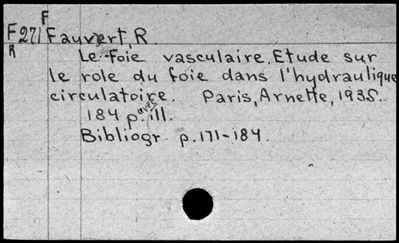 F
F271 Fauvert, R.
R
Le foie vasculaire. Etude sur
le role du foie dans l'hydraulique
circulatoire. Paris, Arnette, 1935.
184 p. avec ill.
Bibliogr. p. 171-184.